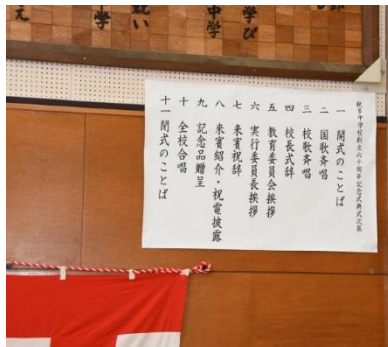 秋多中学校創立六十周年記念式典式次第
一 開式のことば
二 国歌斉唱
三 校歌斉唱
四 校長式辞
五 教育委員会挨拶
六 実行委員長挨拶
七 来賓祝辞
八 来賓紹介・祝電披露
九 記念品贈呈
十 全校合唱
十一 閉式のことば
学び
中学
学
え